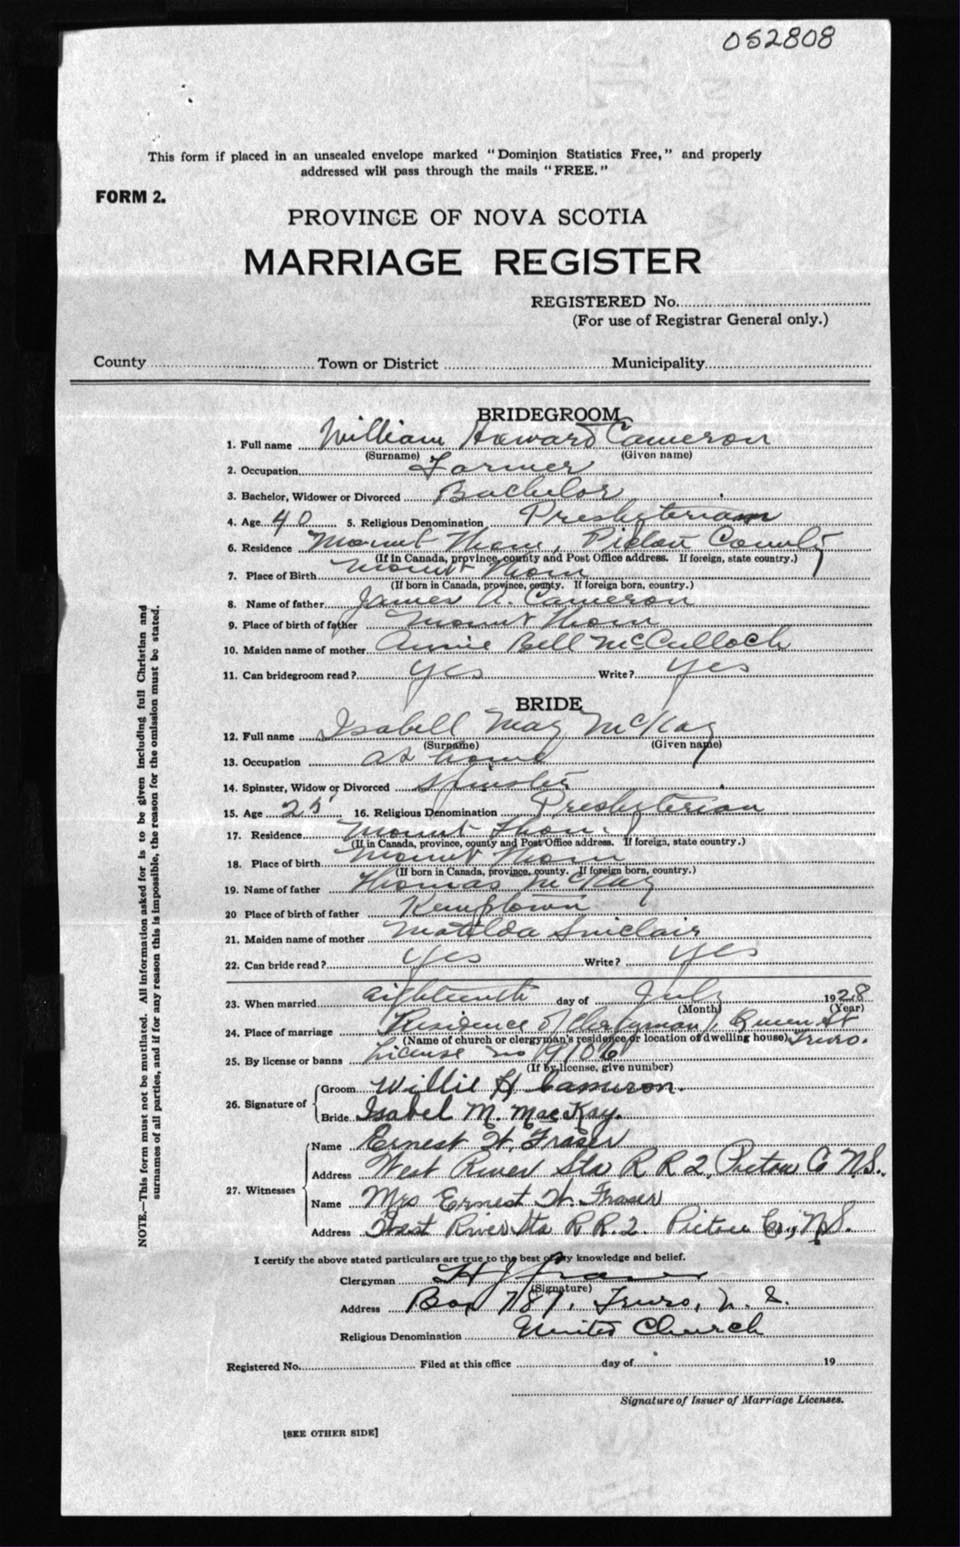 052808
This form if placed in an unsealed envelope marked "Dominion Statistics Free," and properly
addressed will pass through the mails "FREE."
FORM 2.
PROVINCE OF NOVA SCOTIA
MARRIAGE REGISTER
REGISTERED No.
(For use of Registrar General only.)
County Town or District Municipality
BRIDEGROOM
1. Full name William Howard Cameron
(Surname) (Given name)
2. Occupation Farmer
3. Bachelor, Widower or Divorced Bachelor
4. Age 40 5. Religious Denomination Presbyterian
6. Residence Mount Thom, Pictou County
(If in Canada, province, county and Post Office address. If foreign, state country.)
7. Place of Birth Mount Thom
(If born in Canada, province, county. If foreign born, country.)
8. Name of father James A. Cameron
9. Place of birth of father Mount Thom
10. Maiden name of mother Annie Bell McCulloch
11. Can bridegroom read? Yes Write? Yes
BRIDE
12. Full name Isabell May McKay
(Surname) (Given name)
13. Occupation at home
14. Spinster, Widow or Divorced Spinster
15. Age 25 16. Religious Denomination Presbyterian
17. Residence Mount Thom.
(If in Canada, province, county and Post Office address. If foreign, state country.)
18. Place of birth Mount Thom
(If born in Canada, province, county. If foreign born, country.)
19. Name of father Thomas McKay
20 Place of birth of father Kemptown
21. Maiden name of mother Matilda Sinclair
22. Can bride read? Yes Write? Yes
23. When married eighteenth day of July 1928
(Month) (Year)
24. Place of marriage Residence of Clergyman, Queen St
(Name of church or clergyman's residence or location of dwelling house) Truro.
25. By license or banns License no 19106
(If by license, give number)
26. Signature of Groom Willie H Cameron.
Bride Isabel M. MacKay.
27. Witnesses Name Ernest W. Fraser
Address West River Sta R R 2, Pictou Co N.S.
Name Mrs Ernest W. Fraser
Address West River Sta R.R. 2. Pictou Co., N.S.
I certify the above stated particulars are true to the best of my knowledge and belief.
Clergyman H J Fraser
(Signature)
Address Box 787, Truro, N. S.
Religious Denomination United Church
Registered No. Filed at this office day of 19
Signature of Issuer of Marriage Licenses.
[SEE OTHER SIDE]
NOTE.—This form must not be mutilated. All information asked for is to be given including full Christian and
surnames of all parties, and if for any reason this is impossible, the reason for the omission must be stated.